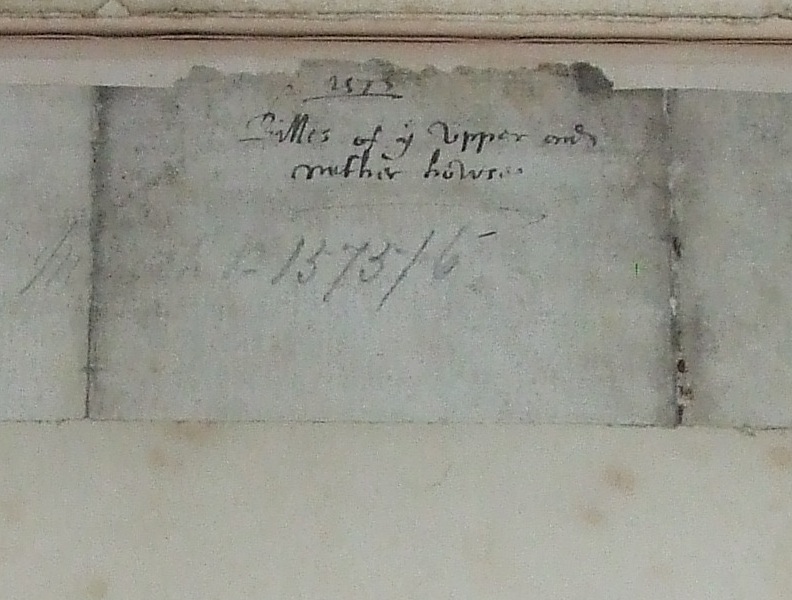 1575
Billes of yͤ Upper and
nether howse
March 12 1575/6